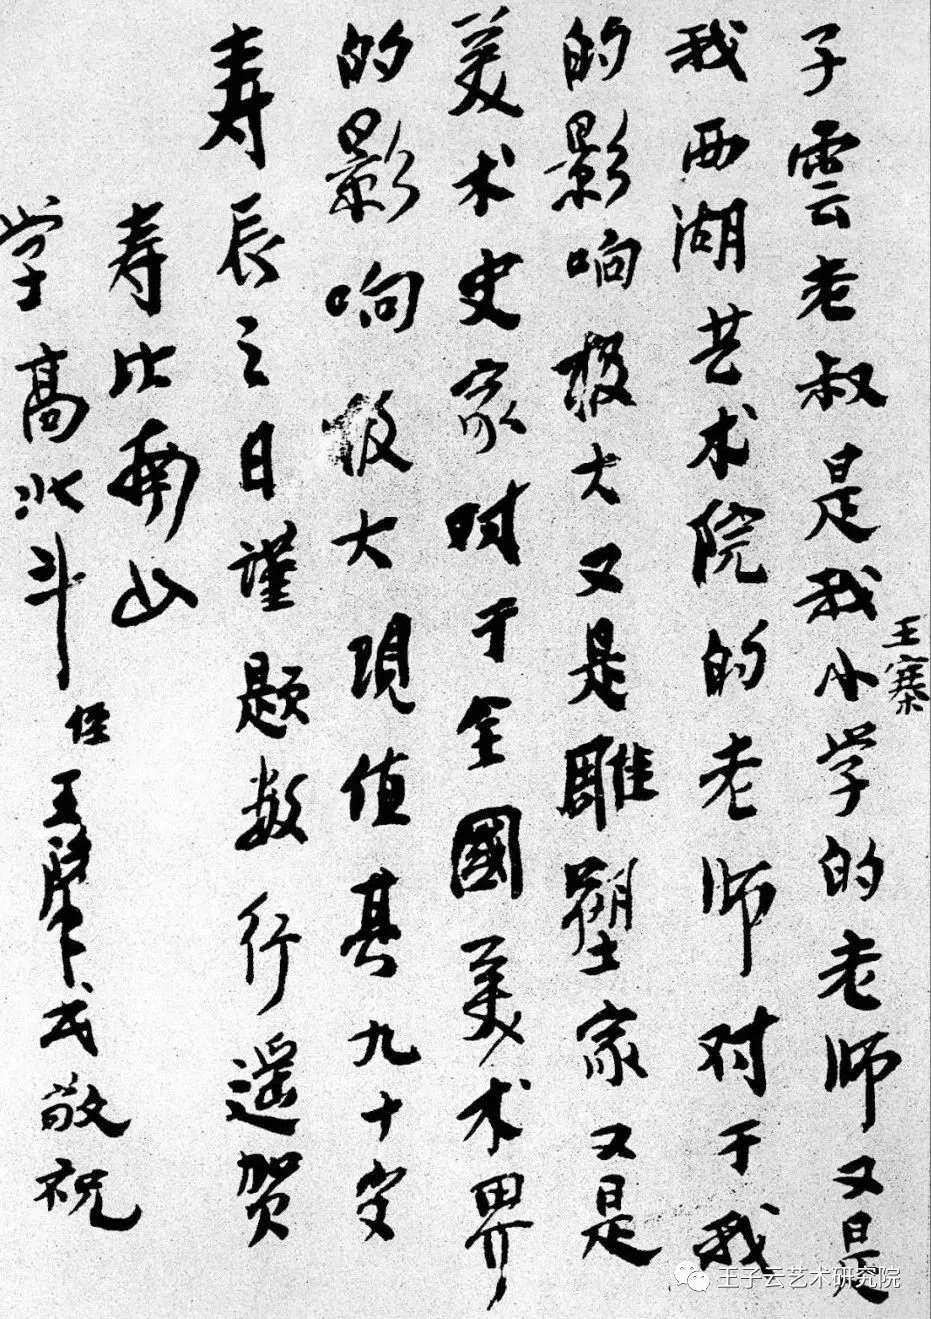 王寨
子雲老叔是我小学的老师又是
我西湖艺术院的老师对于我
的影响极大又是雕塑家又是
美术史家对于全國美术界
的影响极大現值其九十岁
寿辰之日谨题数行遥贺
寿比南山
学高北斗
侄王肇民敬祝
王子云艺术研究院